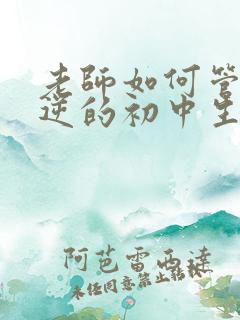 老师如何管
逆的初中生
阿芭雷西達
未经同意禁止转载